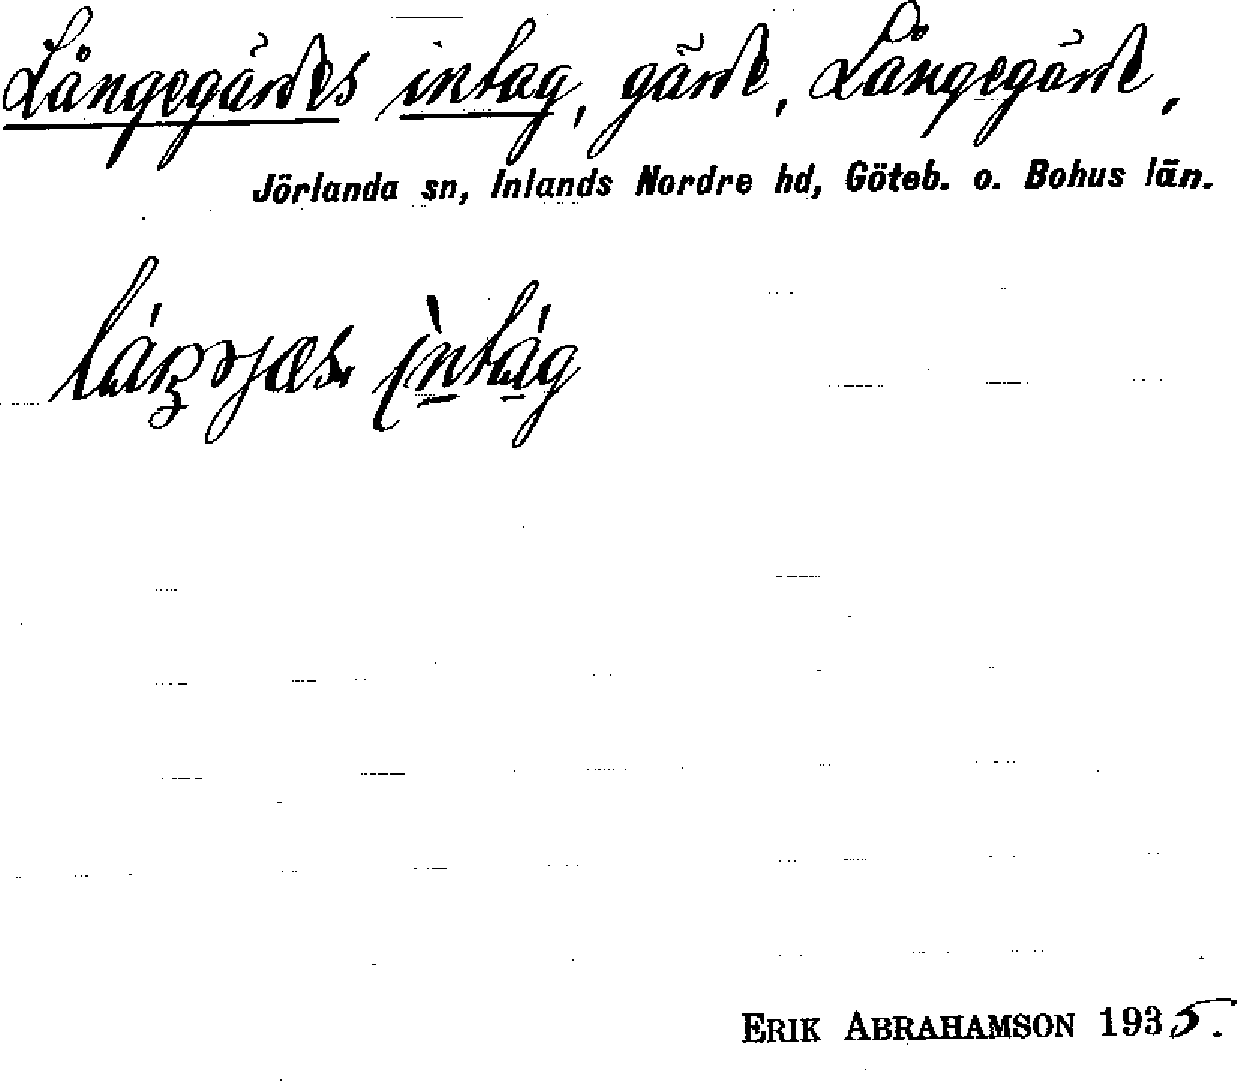 Långegärdes intag, gärde, Långegärde,
Jörlanda sn, Inlands Nordre hd, Göteb. o. Bohus län.
ERIK ABRAHAMSON 1935.